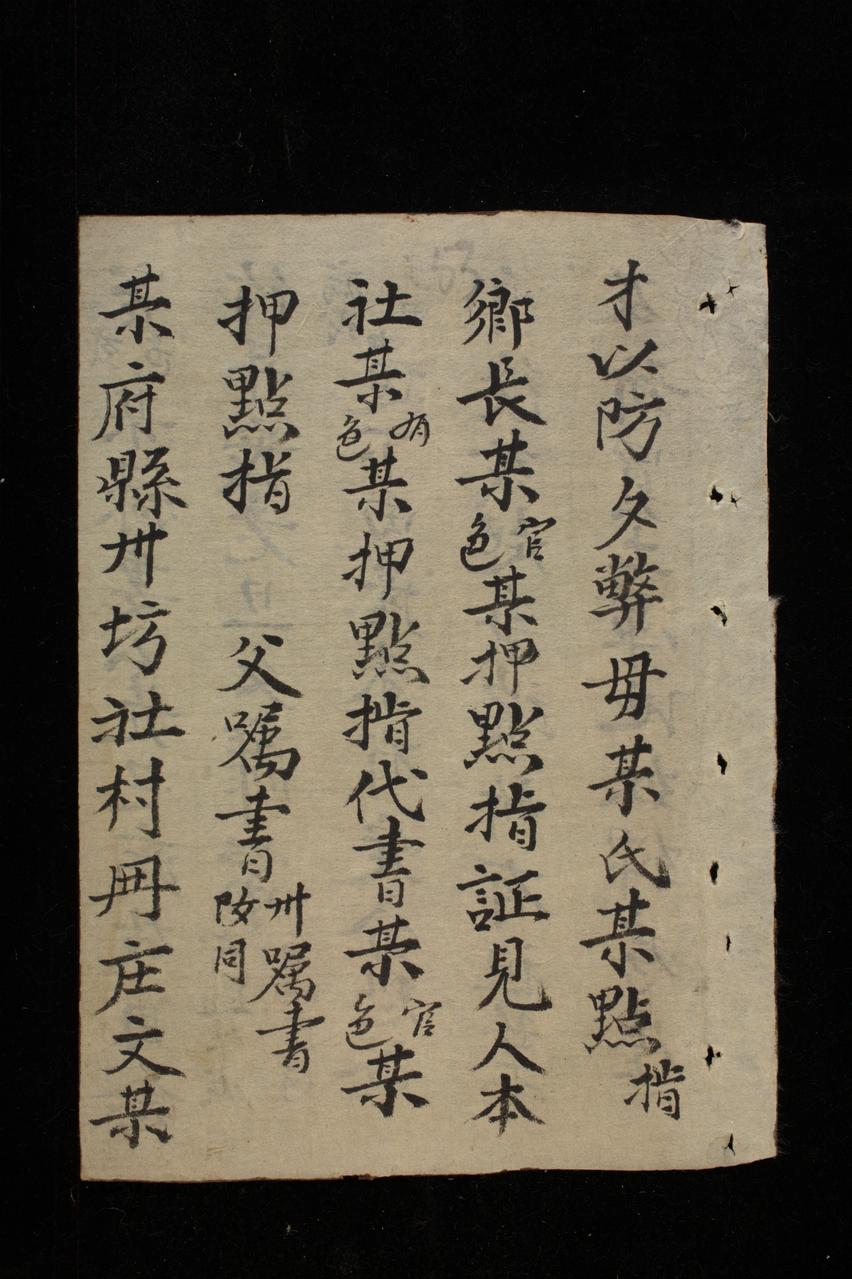 才以防夕弊毋某氏某點指
鄉長某官色某押點指証見人本
社某有色某押點指代書某官色某
押點指 父嘱書卅嘱書仝同
某府縣卅坊社村冊庄文某